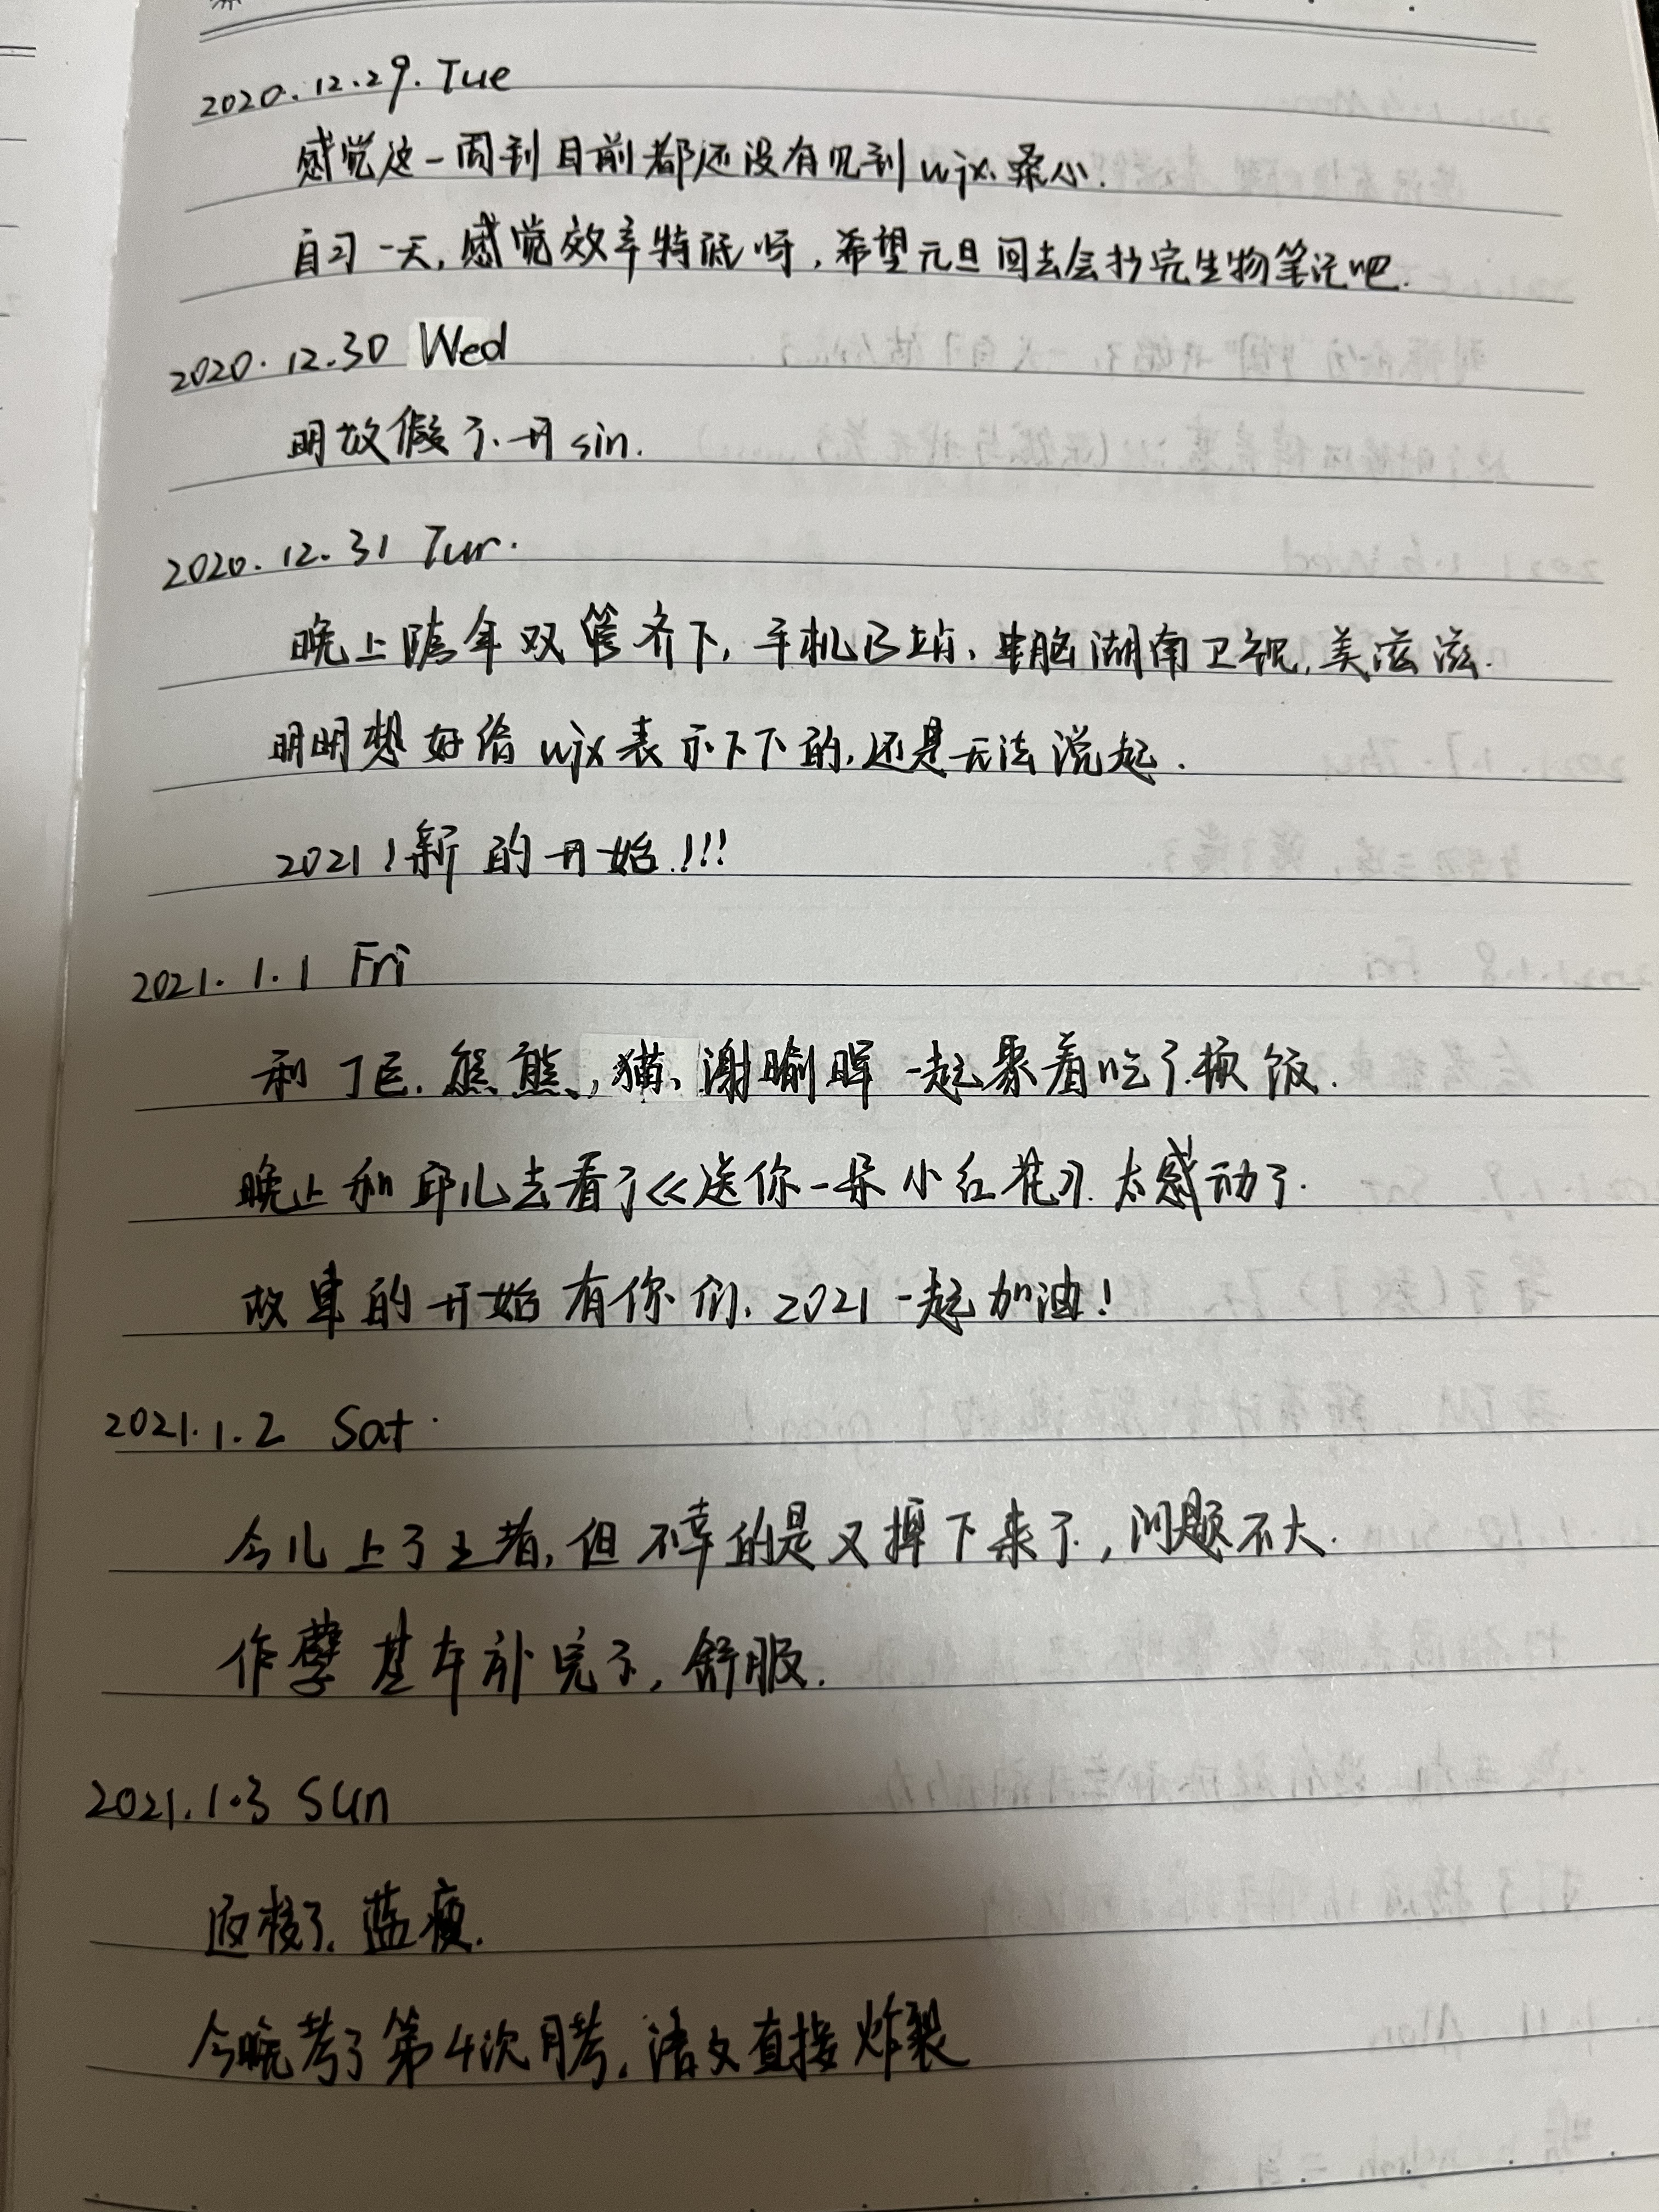 2020.12.29. Tue
感觉这一周到目前都还没有见到wjx、桑心.
自习一天,感觉效率特低呀,希望元旦回去会抄完生物笔记吧.
2020.12.30 Wed
明放假了、开sin.
2020.12.31 Tur.
晚上跨年双管齐下,手机B站、电脑湖南卫视,美滋滋.
明明想好给wjx表示下下的,还是无法说起.
2021!新的开始!!!
2021.1.1 Fri
和丁巨、熊熊、,猫、谢瑜晖一起聚着吃了顿饭.
晚上和邱儿去看了《送你一朵小红花》.太感动了.
故事的开始有你们.2021一起加油!
2021.1.2 Sat.
今儿上了王者,但不幸的是又掉下来了,问题不大.
作孽基本补完了,舒服.
2021.1.3 Sun
返校了.蓝瘦.
今晚考了第4次月考,语文直接炸裂